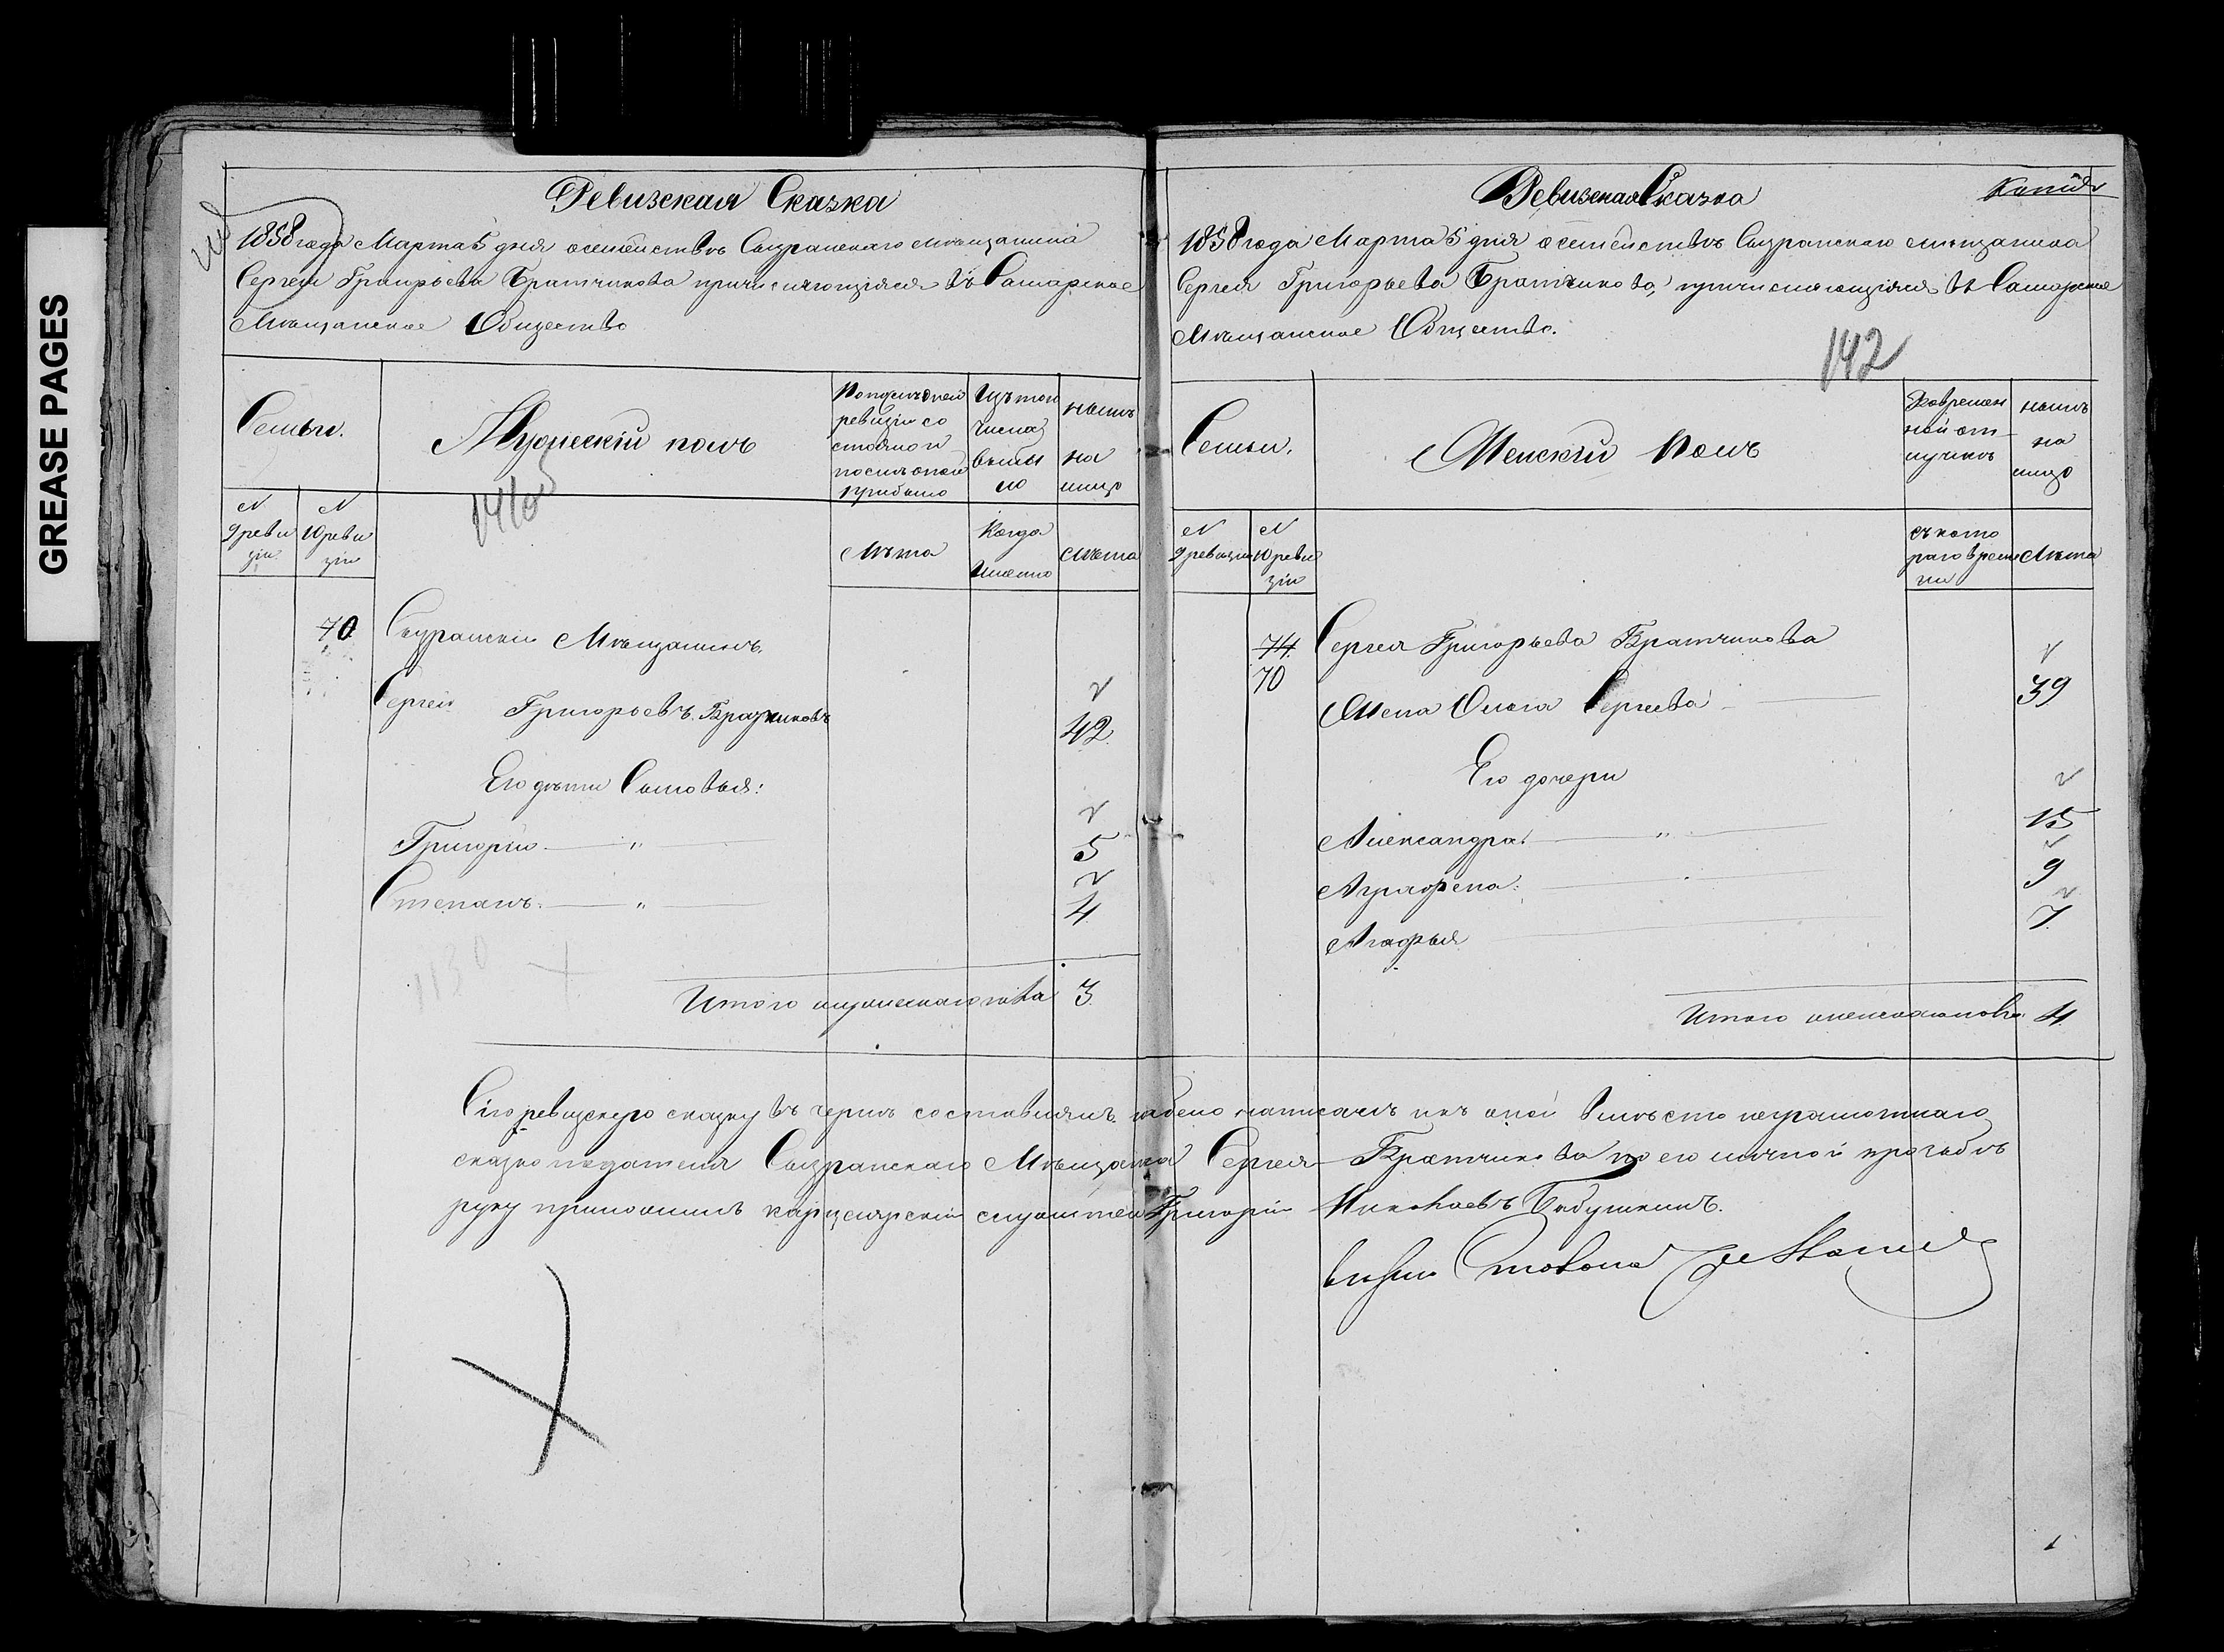 GREASE PAGES
Ревизская Сказка
1858 года Марта 5 дня осемействѣ Сызранскаго мѣщанина
Сергея Григорьева Братчикова причисляющимся въ Самарское
Мѣщанское Общество
Семьи.
Мужескій полъ
По последней
ревизіи со
стояло и
послѣ оной
прибыло
Изъ того
числа
выбы
ло
нынѣ
на
лицо
N
9 реви
зіи
N
10 реви
зіи
1410
Лѣта
Когда
Именно
Лѣта
70
Сызранскій Мѣщанинъ.
Сергей Григорьевъ Братчиковъ
42
Его дѣти Сыновья:
Григорій — " —
5
Степанъ. — " —
4
1130
Итого мужескаго пола 3
Ревизская Сказка
Копія
1858 года Марта 5 дня осемействѣ Сызранскаго мѣщанина
Сергея Григорьева Братчикова, причисляющимся въ Самарское
Мѣщанское Общество.
142
Семьи.
Женскій Полъ
Вовремен
ной от
лучкѣ
нынѣ
на
лицо
N
9 ревизіи
N
10 реви
зіи
съ кото
раго време
ни
Лѣта
74.
70
Сергея Григорьева Братчикова
Жена Ольга Сергеева
39
Его дочери
Александра — " —
15
Аграфена.
9
Агафья
7
Итого женскаго пола 4
Сію ревизскую сказку въ чернѣ составлялъ набело написалъ икъ оной вмѣсто неграмотнаго
сказкоподателя Сызранскаго Мѣщанина Сергея Братчикова по его личной прозьбѣ
руку приложилъ канцелярскій служитель Григорій Николаевъ Бабушкинъ.